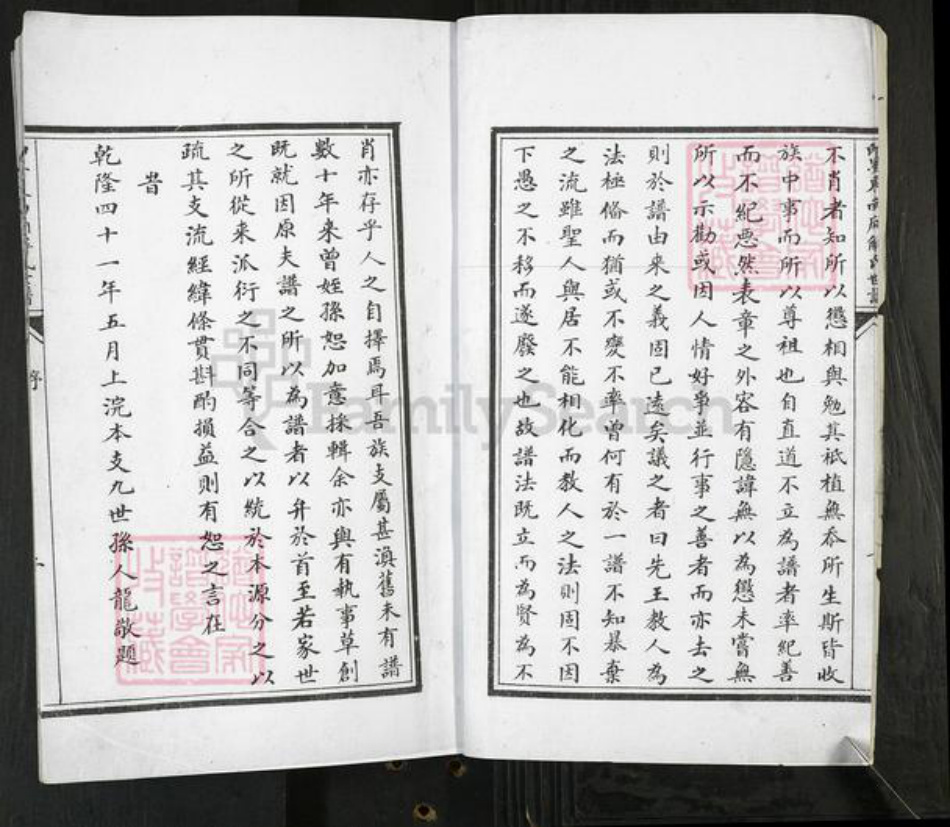 不肖者知所以懲相與勉其祇植無忝所生斯皆收
族中事而所以尊祖也自直道不立為譜者率紀善
而不紀惡然表章之外容有隱諱無以為懲未嘗無
所以示勸或因人情好爭並行事之善者而亦去之
則於譜由來之義固已遠矣議之者曰先王教人為
法極脩而猶或不變不率曾何有於一譜不知暴棄
之流雖聖人與居不能相化而教人之法則固不因
下愚之不移而遂廢之也故譜法既立而為賢為不
肖亦存乎人之自擇焉耳吾族支屬甚渙舊未有譜
數十年來曾姪孫恕加意採輯余亦與有執事草創
既就因原夫譜之所以為譜者以弁於首至若家世
之所從來派衍之不同等合之以統於本源分之以
疏其支流經緯條貫斟酌損益則有恕之言在
旹
乾隆四十一年五月上浣本支九世孫人龍敬題
序
FamilySearch